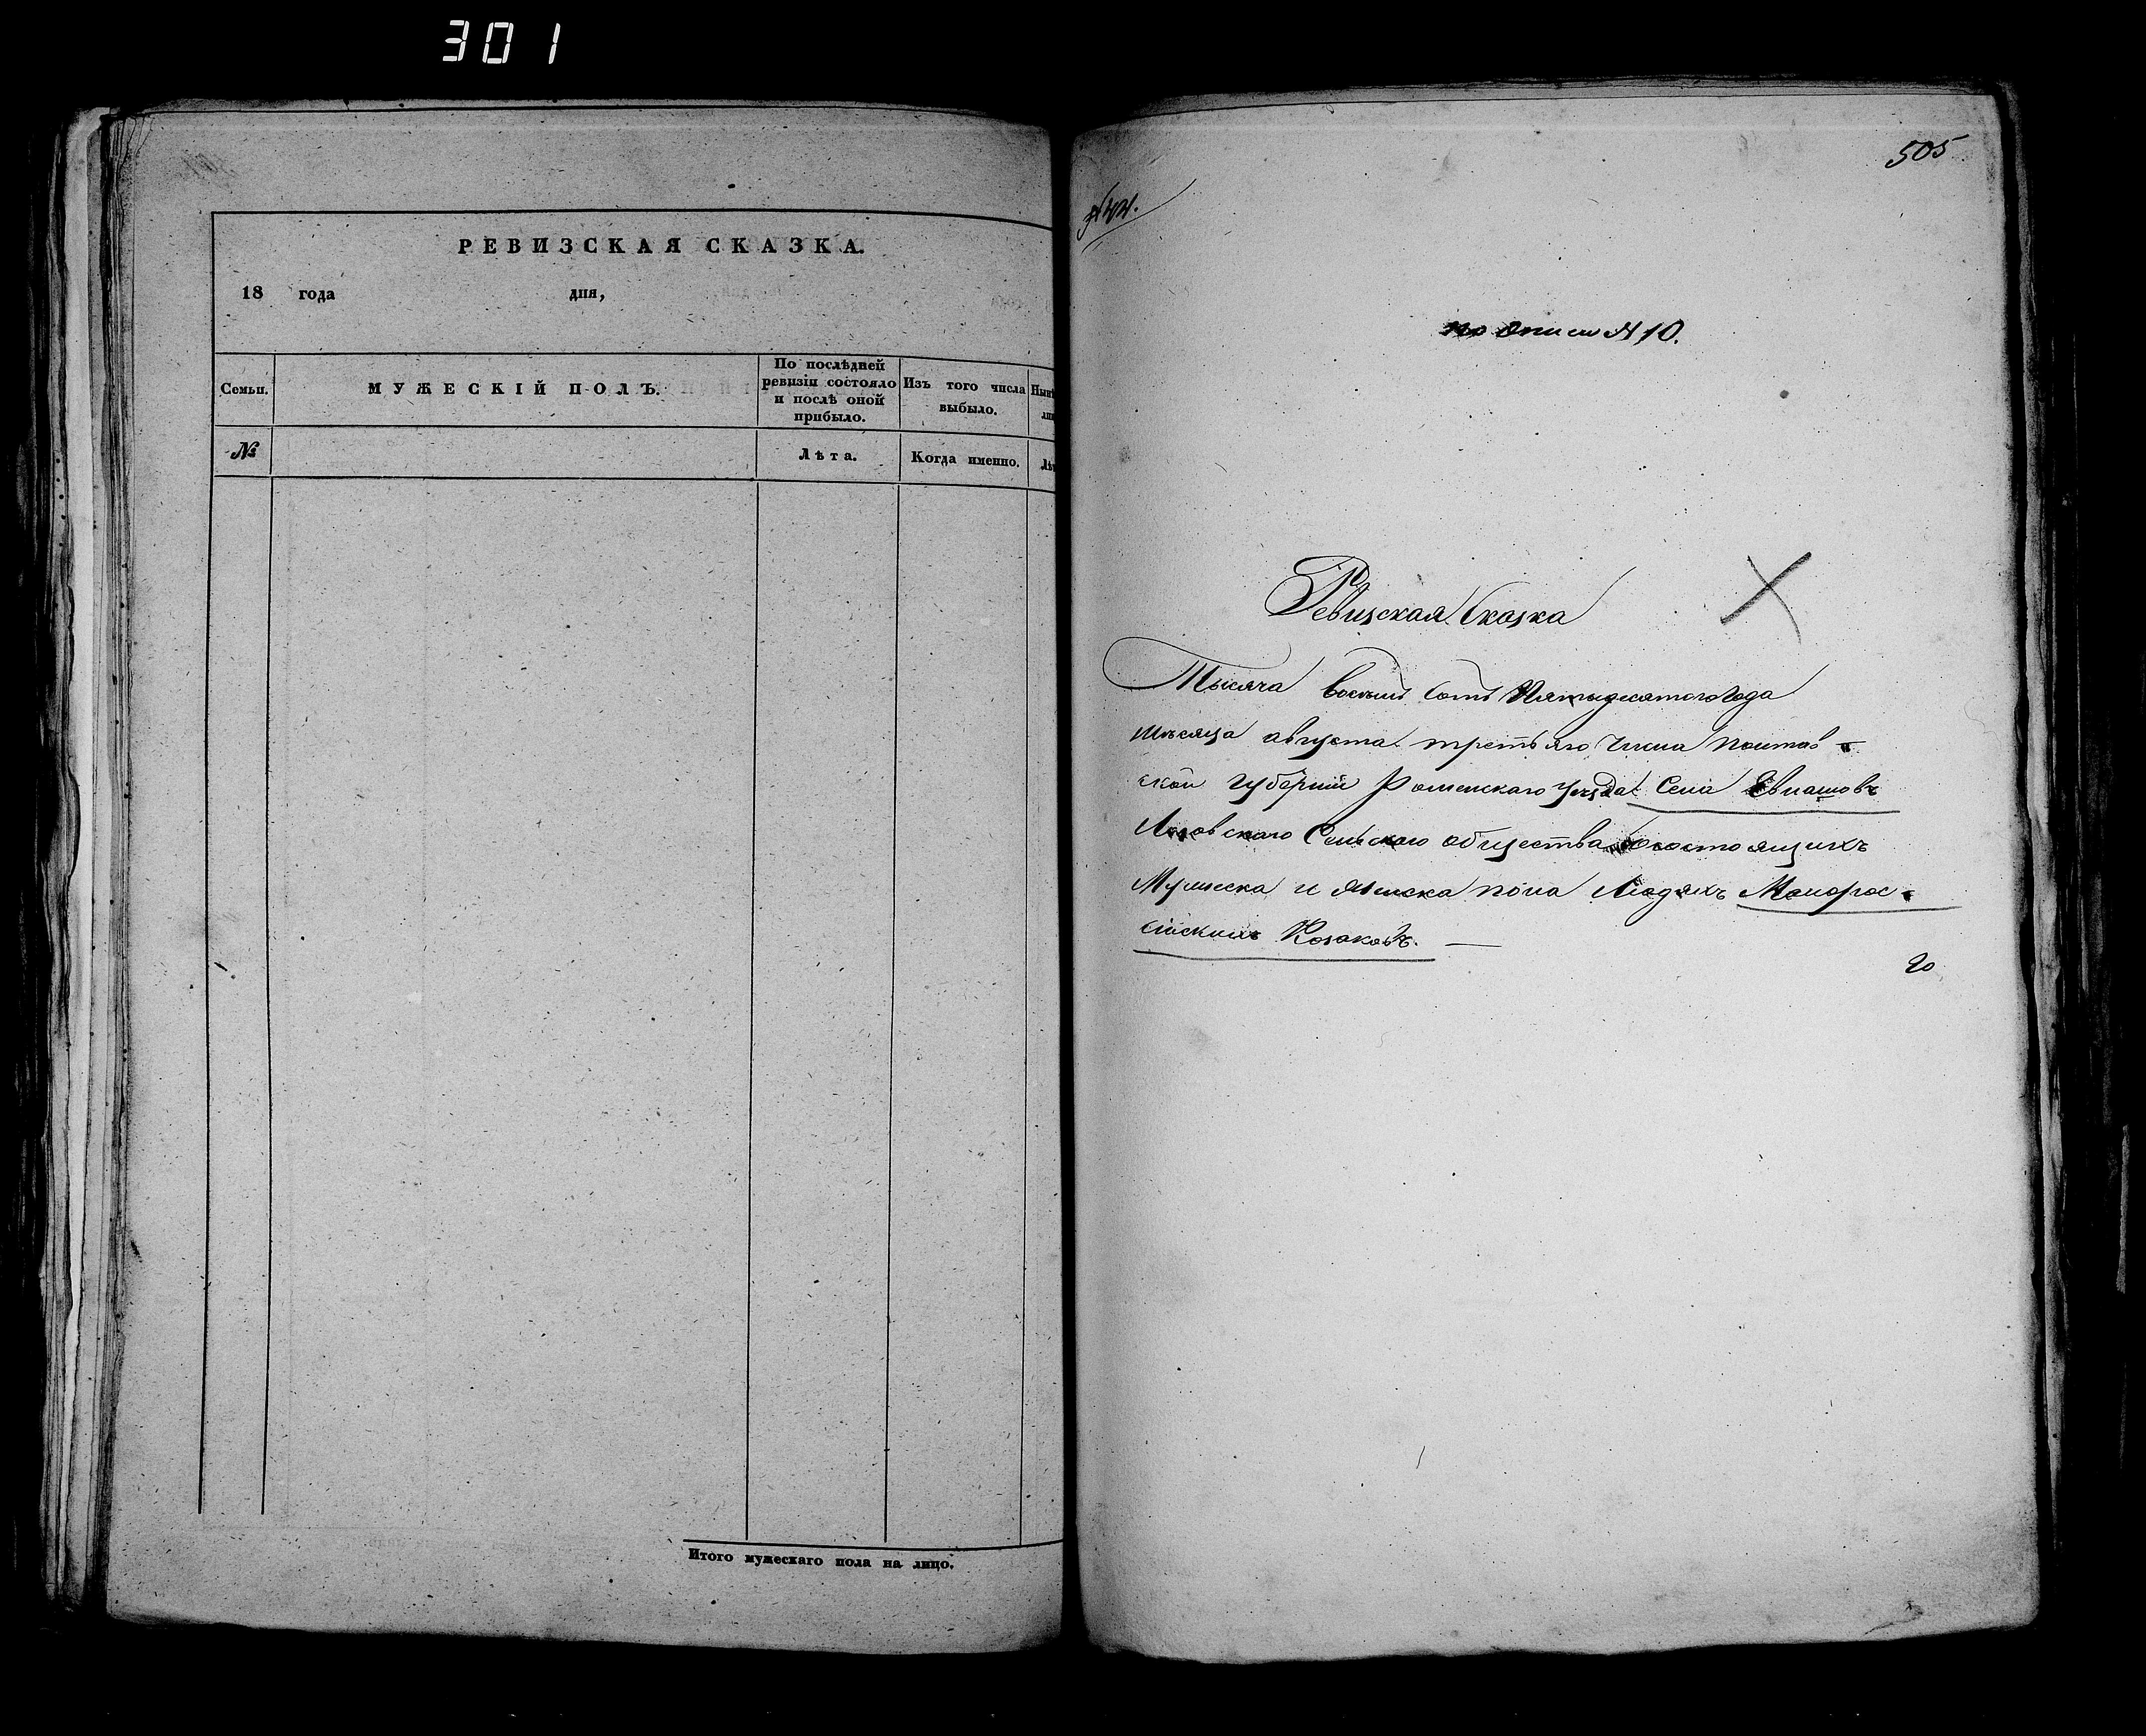 301
РЕВИЗСКАЯ СКАЗКА.
18 года дня,
Семьи.
МУЖЕСКІЙ ПОЛЪ.
По послѣдней
ревизіи состояло
и послѣ оной
прибыло.
Изъ того числа
выбыло.
№
Лѣта.
Когда именно.
Итого мужескаго пола на лицо.
505
по описи № 10.
Ревизская Сказка
Тысяча восемь сотъ Пятьдесятого года
мѣсяца августа третьяго числа Полтав-
ской губерніи Роменскаго уѣзда Села
Сельского общества состоящихъ
Мужеска и женска пола людяхъ Малорос-
сійскихъ Козаковъ.
20